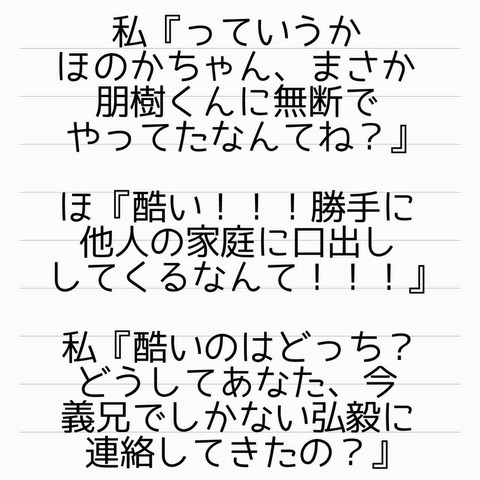 私『っていうか
ほのかちゃん、まさか
朋樹くんに無断で
やってたなんてね？』
ほ『酷い！！！勝手に
他人の家庭に口出し
してくるなんて！！！』
私『酷いのはどっち？
どうしてあなた、今
義兄でしかない弘毅に
連絡してきたの？』